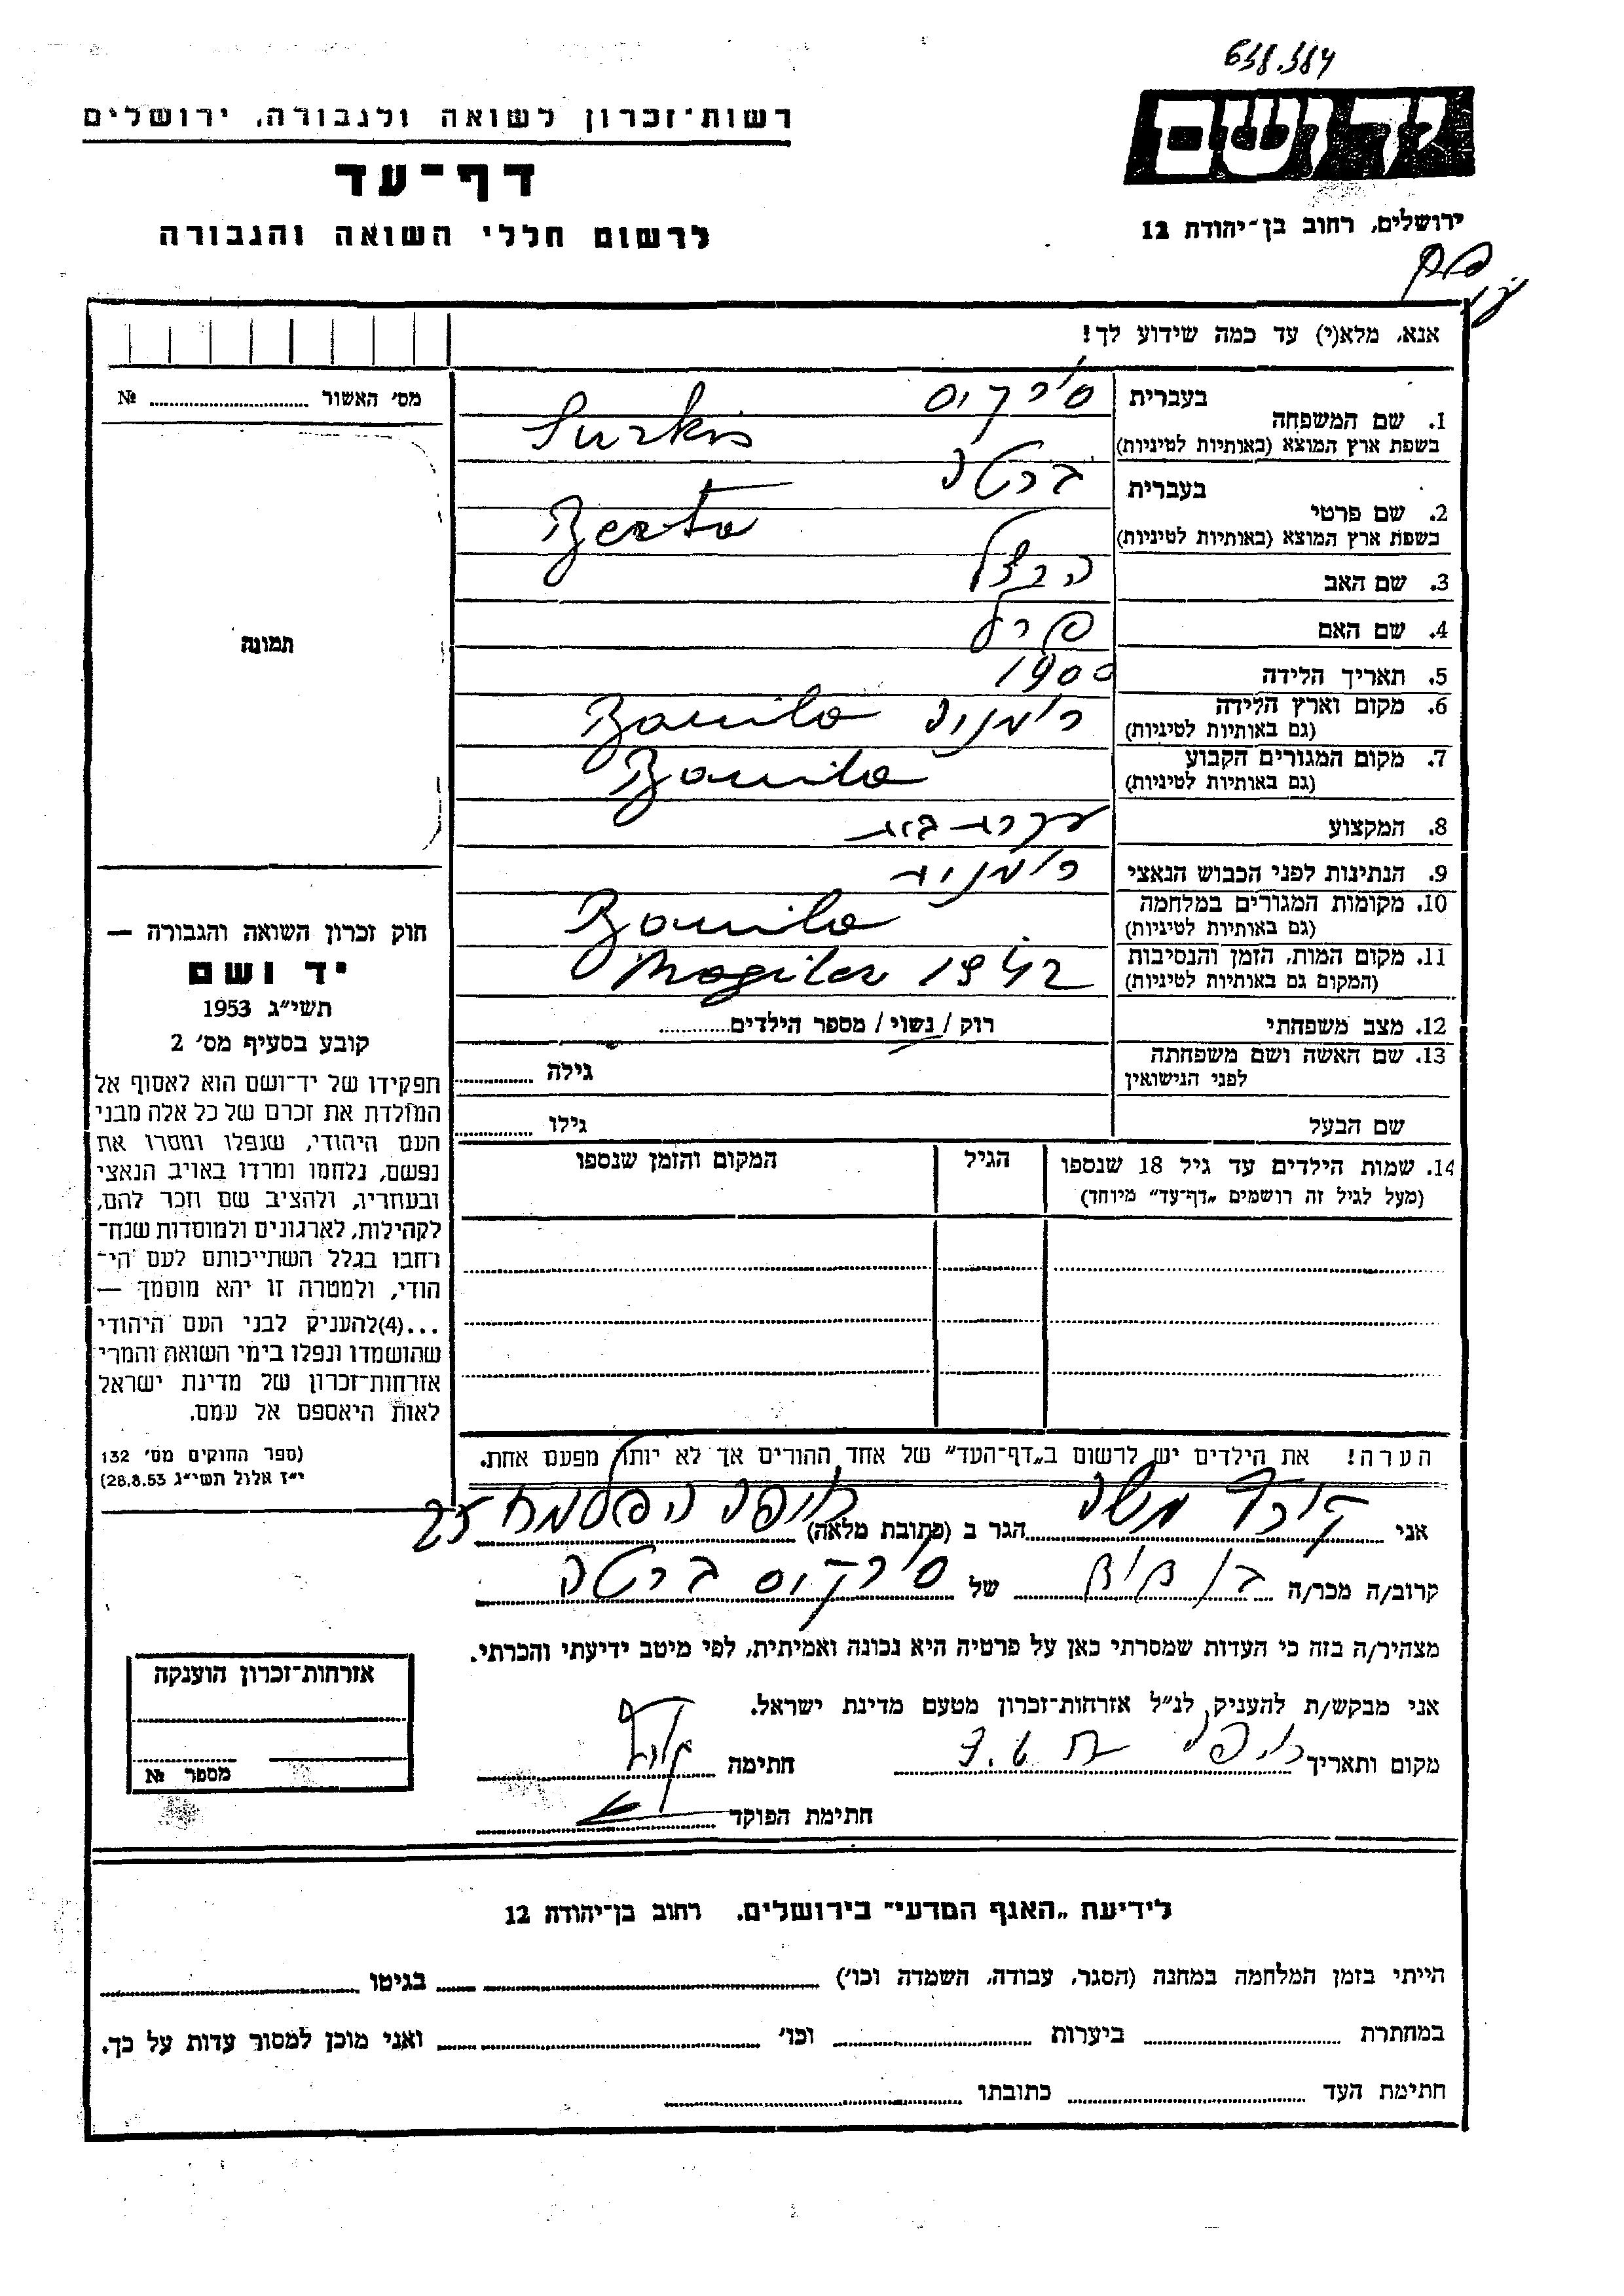 638.384
ידושם
רשות־זכרון לשואה ולגבורה, ירושלים
דף־עד
לרשום חללי השואה והגבורה
ירושלים, רחוב בן־יהודה 12
אנא, מלא(י) עד כמה שידוע לך!
מס׳ האשור № ........
1. שם המשפחה
בעברית סירקיס
בשפת ארץ המוצא (באותיות לטיניות) Surkis
2. שם פרטי
בעברית ברטה
בשפת ארץ המוצא (באותיות לטיניות) Berta
3. שם האב הרצל
4. שם האם פרל
5. תאריך הלידה 1900
6. מקום וארץ הלידה (גם באותיות לטיניות) רומניה Banila
7. מקום המגורים הקבוע (גם באותיות לטיניות) Banila
8. המקצוע עקרת בית
9. הנתינות לפני הכבוש הנאצי רומנית
10. מקומות המגורים במלחמה (גם באותיות לטיניות) Banila
11. מקום המות, הזמן והנסיבות (המקום גם באותיות לטיניות) Mogilev 1942
12. מצב משפחתי רוק / נשוי / מספר הילדים........
13. שם האשה ושם משפחתה לפני הנישואין גילה ........
שם הבעל גילו ........
14. שמות הילדים עד גיל 18 שנספו (מעל לגיל זה רושמים „דף־עד״ מיוחד)
הגיל
המקום והזמן שנספו
הערה! את הילדים יש לרשום ב„דף־העד״ של אחד ההורים אך לא יותר מפעם אחת.
תמונה
חוק זכרון השואה והגבורה —
יד ושם
תשי״ג 1953
קובע בסעיף מס׳ 2
תפקידו של יד־ושם הוא לאסוף אל
המולדת את זכרם של כל אלה מבני
העם היהודי, שנפלו ומסרו את
נפשם, נלחמו ומרדו באויב הנאצי
ובעוזריו, ולהציב שם וזכר להם,
לקהילות, לארגונים ולמוסדות שנח־
רחבו בגלל השתייכותם לעם הי־
הודי, ולמטרה זו יהא מוסמך —
...(4)להעניק לבני העם היהודי
שהושמדו ונפלו בימי השואה והמרי
אזרחות־זכרון של מדינת ישראל
לאות היאספם אל עמם.
(ספר החוקים מס׳ 132
י״ז אלול תשי״ג 28.8.53)
אני משה הגר ב (כתובת מלאה) חיפה הפלמח 25
קרוב/ה מכר/ה של סירקיס ברטה
מצהיר/ה בזה כי העדות שמסרתי כאן על פרטיה היא נכונה ואמיתית, לפי מיטב ידיעתי והכרתי.
אני מבקש/ת להעניק לנ״ל אזרחות־זכרון מטעם מדינת ישראל.
מקום ותאריך חיפה חתימה
חתימת הפוקד
אזרחות־זכרון הוענקה
מספר №
לידיעת „האגף המדעי״ בירושלים, רחוב בן־יהודה 12
הייתי בזמן המלחמה במחנה (הסגר, עבודה, השמדה וכו׳) ........ בגיטו ........
במחתרת ........ ביערות ........ וכו׳ ........ ואני מוכן למסור עדות על כך.
חתימת העד ........ כתובתו ........